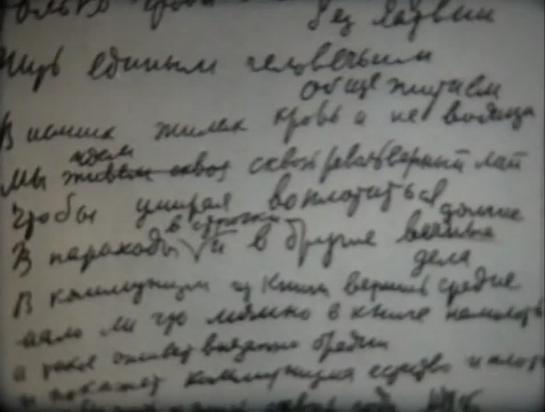 без Латвии
Жить единым человечьим
общежитием
В наших жилах кровь а не водица
идем
Мы живем сквозь сквозь револьверный лай
Чтобы умирая воплотиться
в строчки долгие
В пароходы и в другие
дела
В коммунизм из книги веришь средне
мало ли что можно в книге намолоть
а такое оживит внезапно бредни
и покажет коммунизма естество и плоть